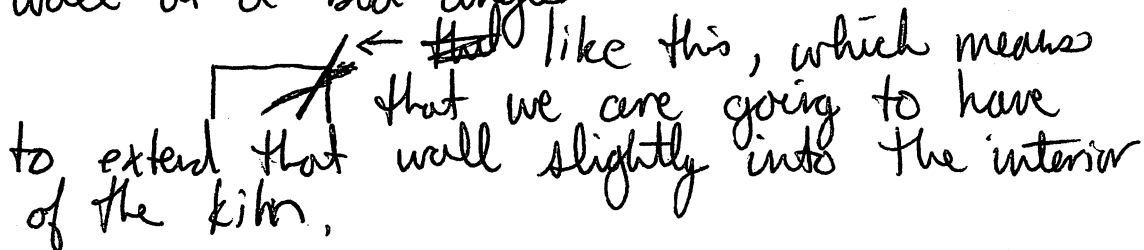 wall at a bad angle
← like this, which means
that we are going to have
to extend that wall slightly into the interior
of the kiln.